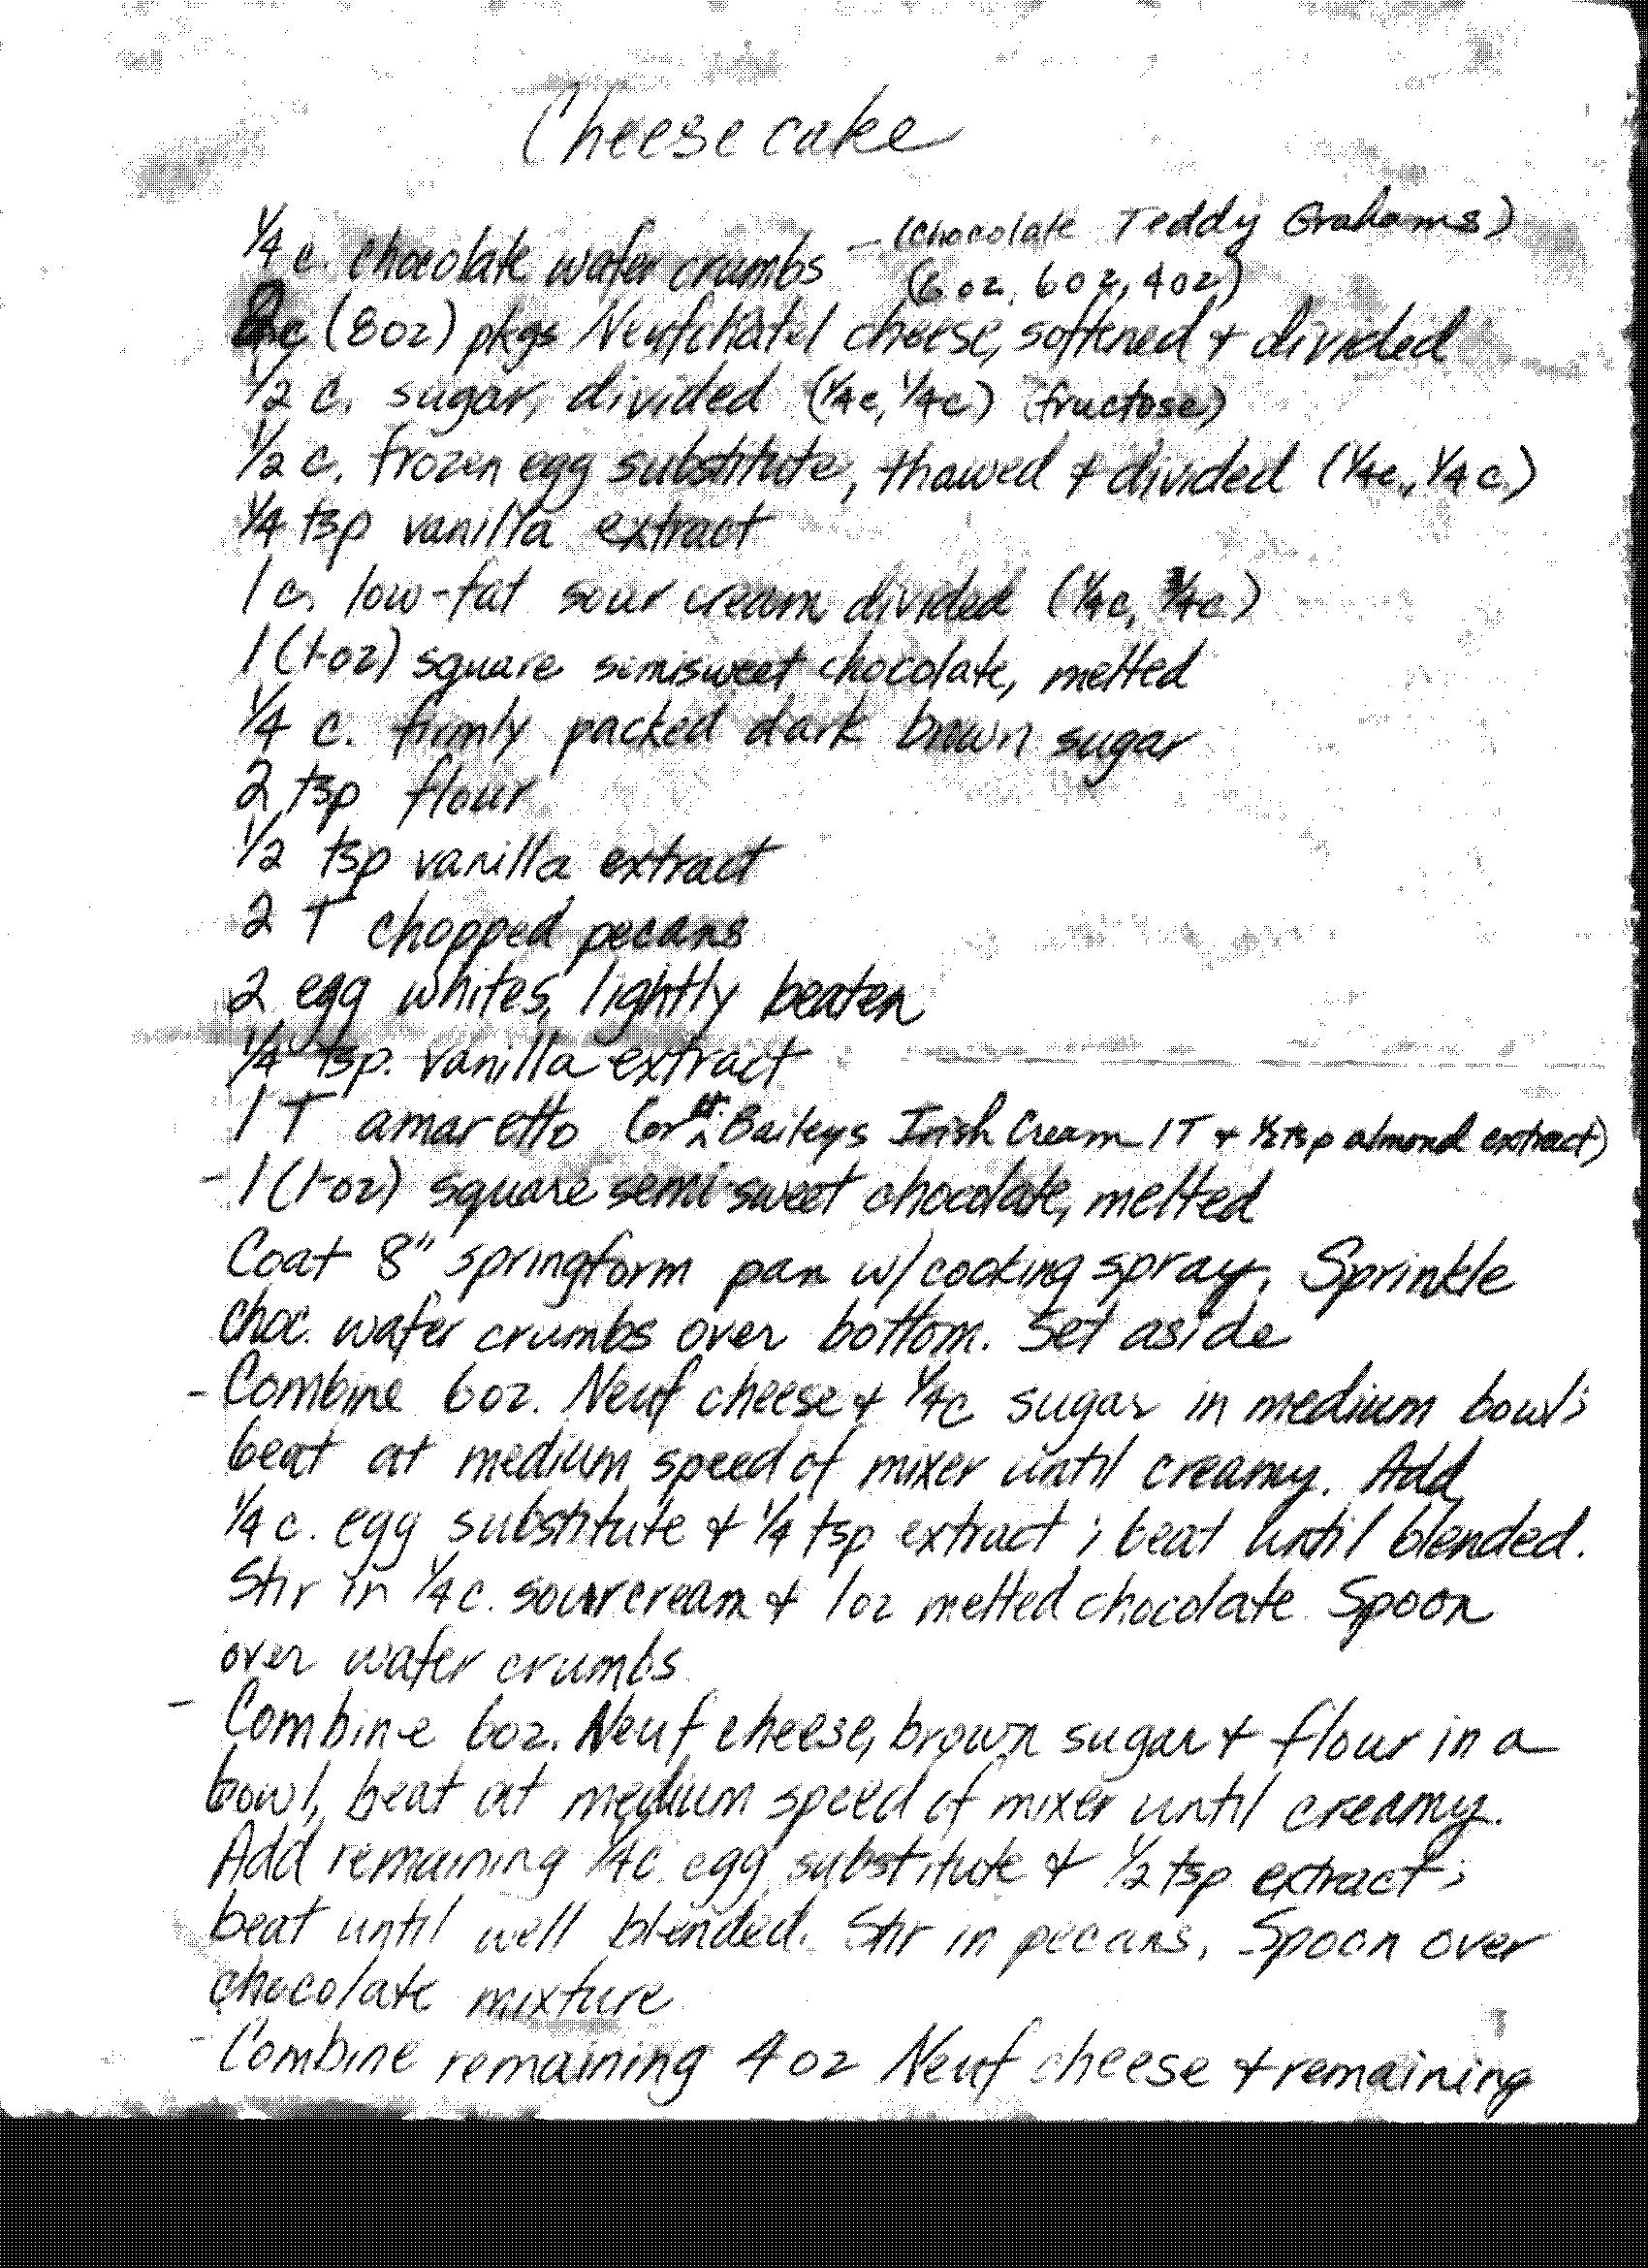 Cheesecake
1/4 c. chocolate wafer crumbs - (chocolate Teddy Grahams)
(6oz, 6oz, 4oz)
2 (8oz) pkgs Neufchatel cheese, softened + divided
1/2 c. sugar, divided (1/4c, 1/4c) (fructose)
1/2 c. frozen egg substitute, thawed + divided (1/4c., 1/4 c.)
1/4 tsp vanilla extract
1 c. low-fat sour cream divided (1/4c, 3/4c)
1 (1-oz) square semisweet chocolate, melted
1/4 c. firmly packed dark brown sugar
2 tsp flour
1/2 tsp vanilla extract
2 T chopped pecans
2 egg whites, lightly beaten
1/4 tsp. vanilla extract
1 T amaretto (or Baileys Irish Cream 1T + 1/2 tsp almond extract)
- 1 (1-oz) square semi-sweet chocolate, melted
Coat 8" springform pan w/ cooking spray. Sprinkle
choc. wafer crumbs over bottom. Set aside
- Combine 6oz. Neuf cheese + 1/4c sugar in medium bowl;
beat at medium speed of mixer until creamy. Add
1/4 c. egg substitute + 1/4 tsp extract; beat until blended.
Stir in 1/4c. sour cream + 1oz melted chocolate. Spoon
over wafer crumbs
- Combine 6oz. Neuf cheese, brown sugar + flour in a
bowl, beat at medium speed of mixer until creamy.
Add remaining 1/4c. egg substitute + 1/2 tsp extract;
beat until well blended. Stir in pecans. Spoon over
chocolate mixture
- Combine remaining 4 oz Neuf cheese + remaining